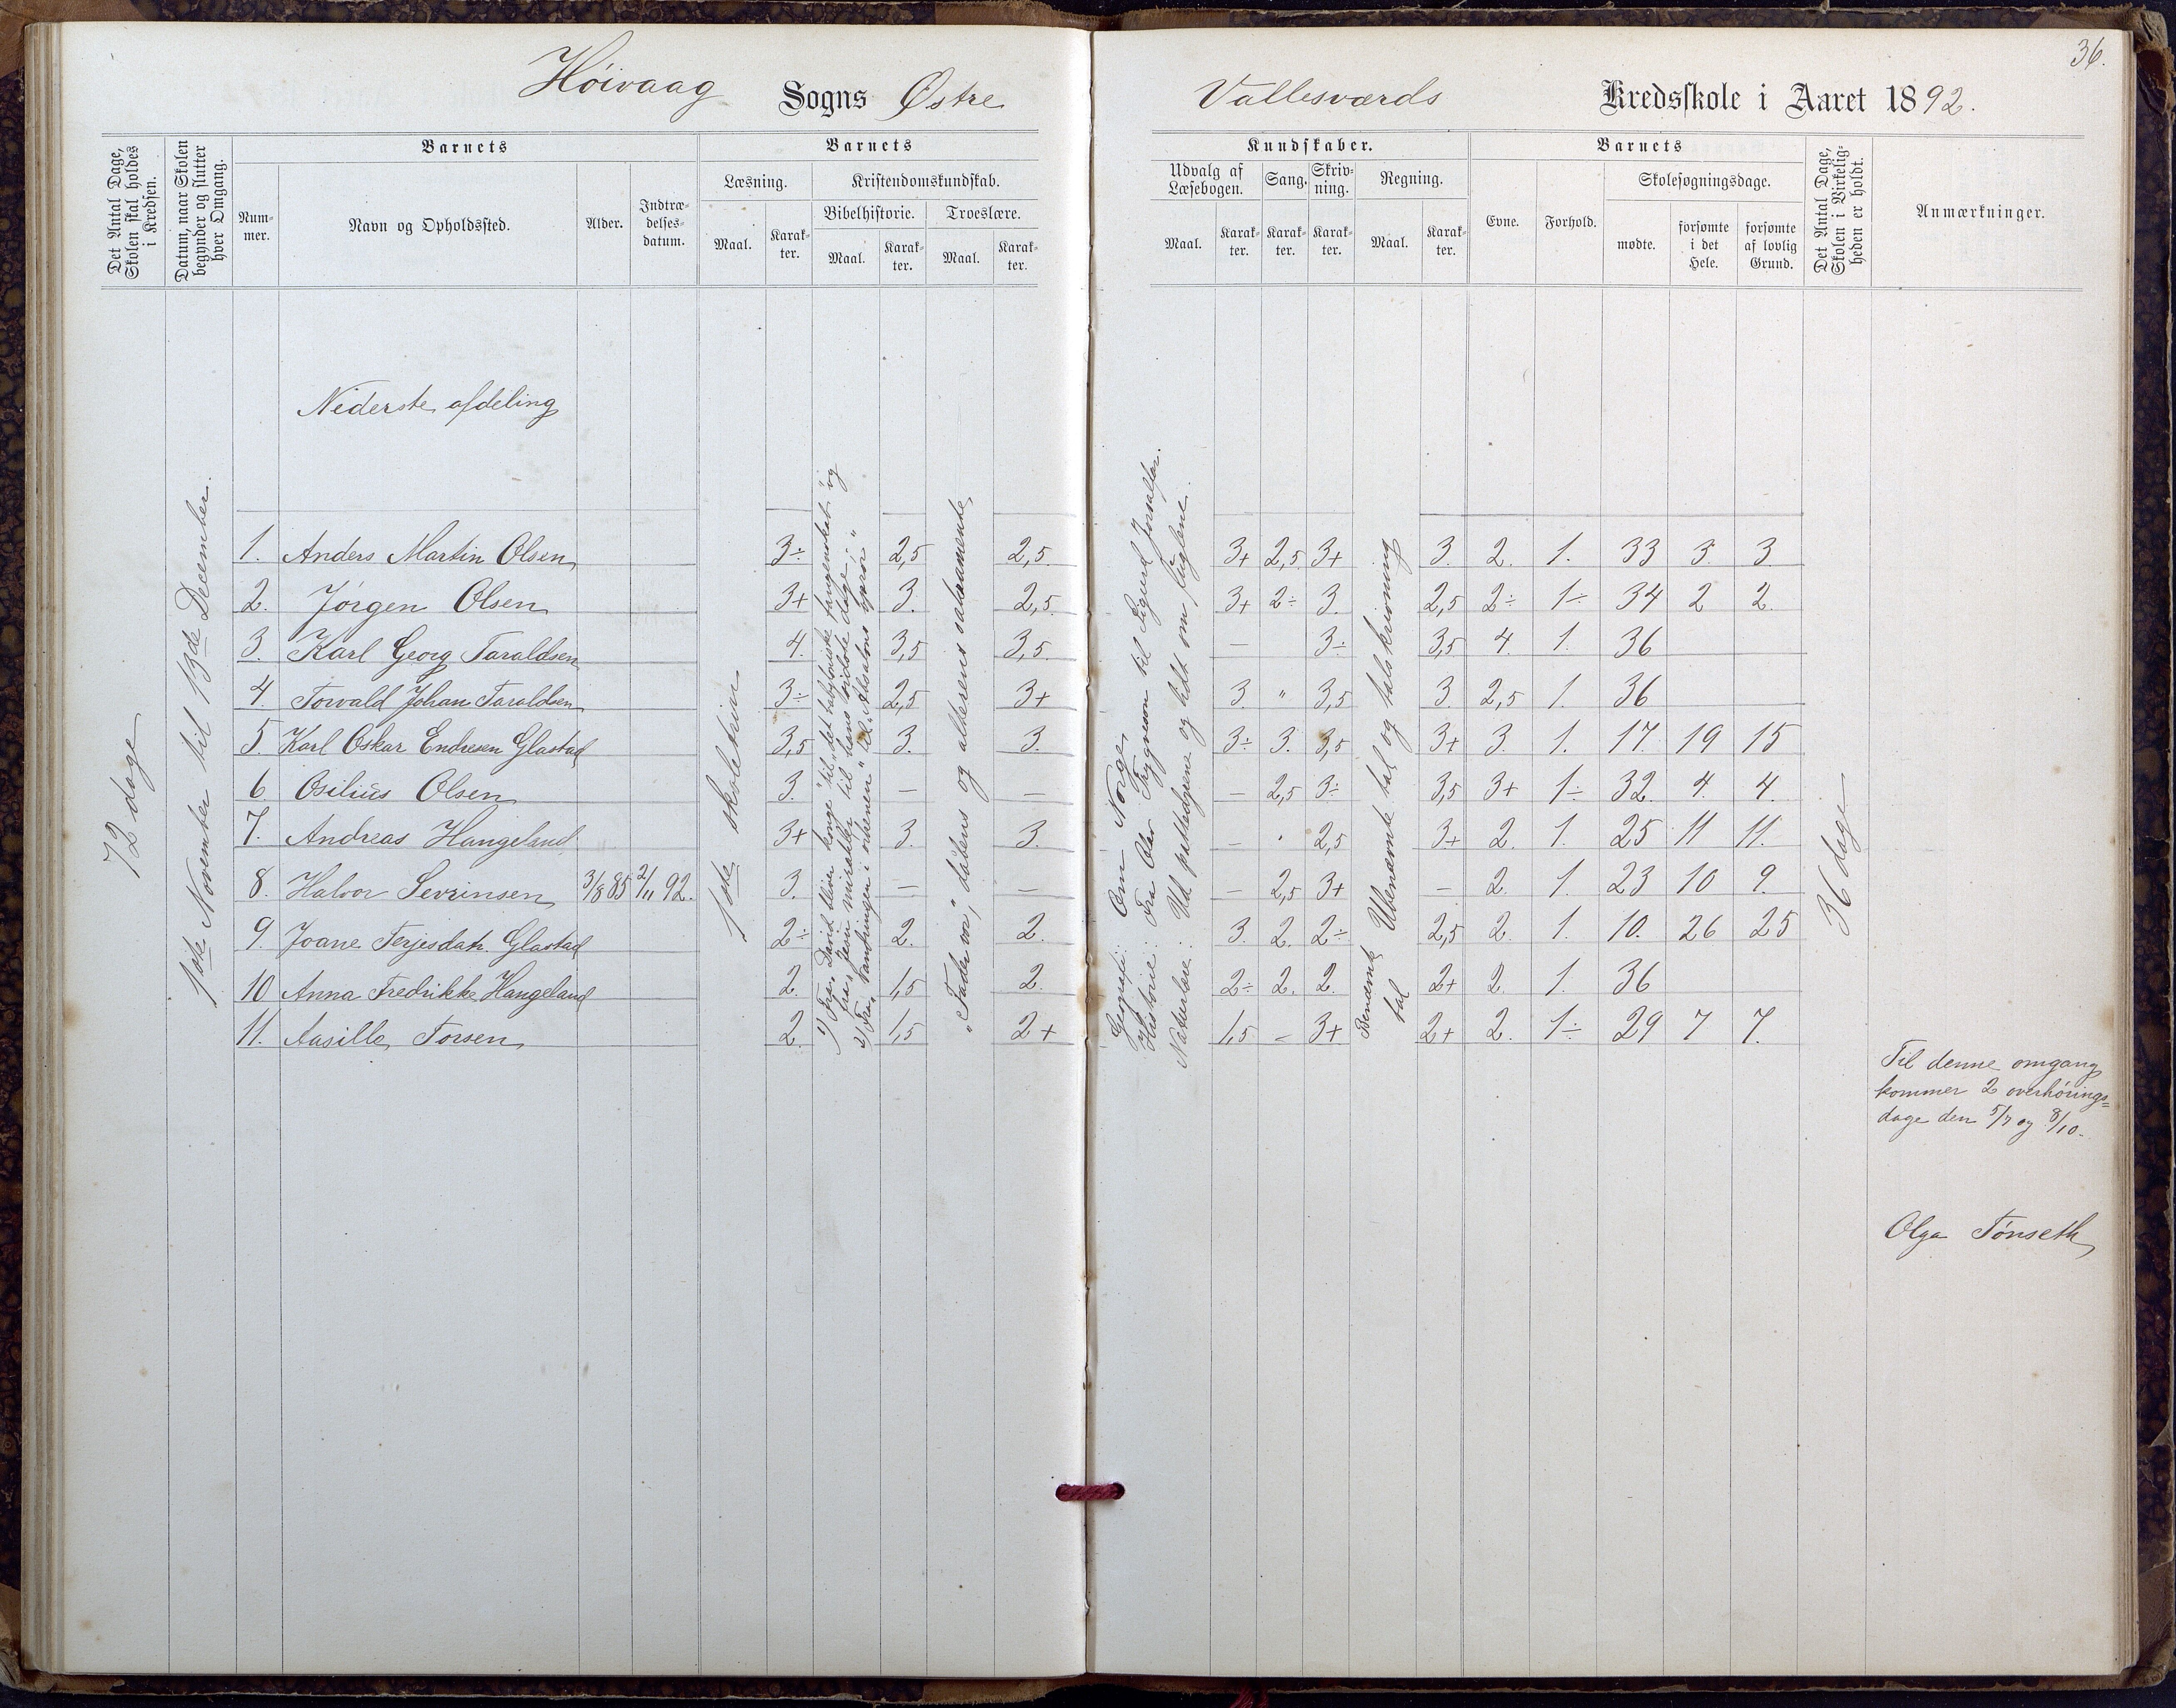 36.
Höivaag Sogns Østre Vallesværds Kredsskole i Aaret 1892.
Det Antal Dage, Skolen skal holdes i Kredsen.
Datum, naar Skolen begynder og slutter hver Omgang.
Barnets
Nummer.
Navn og Opholdssted.
Alder.
Indtrædelsesdatum.
Barnets
Læsning.
Maal.
Karakter.
Kristendomskundskab.
Bibelhistorie.
Maal.
Karakter.
Troeslære.
Maal.
Karakter.
Kundskaber.
Udvalg af Læsebogen.
Maal.
Karakter.
Sang.
Karakter.
Skrivning.
Karakter.
Regning.
Maal.
Karakter.
Barnets
Evne.
Forhold.
Skolesøgningsdage.
mødte.
forsømte i det Hele.
forsømte af lovlig Grund.
Det Antal Dage, Skolen i Virkeligheden er holdt.
Anmærkninger.
72 dage
1ste November til 13de December.
Nederste afdeling
1ste skoletrin
1) Fra „David bliver konge" til „det babyloniske fangenskab" og
fra „Jesu mirakler" til „hans sidste dage";
2) Fra „Vandringen i ørkenen" til „Absalons oprør"
„Fader vor", dåbens og alterens sakramente
Geografi: Om Norge
Historie: Fra Olav Trygveson til Sigurd Jorsalfar.
Naturlære: Ud pattedyrene og lidt om fuglene.
Ubenævnte tal og talskrivning
Benævnte tal
36 dage
1. Anders Martin Olsen 3÷ 2,5 2,5 3+ 2,5 3+ 3. 2. 1. 33 3 3
2. Jörgen Olsen 3+ 3. 2,5 3+ 2÷ 3. 2,5 2÷ 1÷ 34 2 2
3. Karl Georg Taraldsen 4. 3,5 3,5 — 3÷ 3,5 4. 1. 36
4. Torvald Johan Taraldsen 3÷ 2,5 3+ 3. " 3,5 3. 2,5 1. 36
5. Karl Oskar Endresen Glastad 3,5 3. 3. 3÷ 3. 3,5 3+ 3. 1. 17. 19 15
6 Osilius Olsen 3. — — — 2,5 3÷ 3,5 3+ 1÷ 32. 4. 4.
7. Andreas Hangeland 3+ 3. 3. — 2,5 3+ 2. 1. 25 11 11.
8. Halvor Sevrinsen 3/8 85 2/11 92. 3. — — — 2,5 3+ — 2. 1. 23 10 9.
9. Joane Terjesdatr. Glastad 2÷ 2. 2. 3. 2. 2÷ 2,5 2. 1. 10. 26 25
10 Anna Fredrikke Hangeland 2. 1,5 2. 2÷ 2. 2. 2+ 2. 1. 36
11. Aasille Torsen 2. 1,5 2+ 1,5 — 3+ 2+ 2. 1÷ 29 7 7.
Til denne omgang
kommer 2 overhörings=
dage den 5/7 og 8/10.
Olga Tönseth